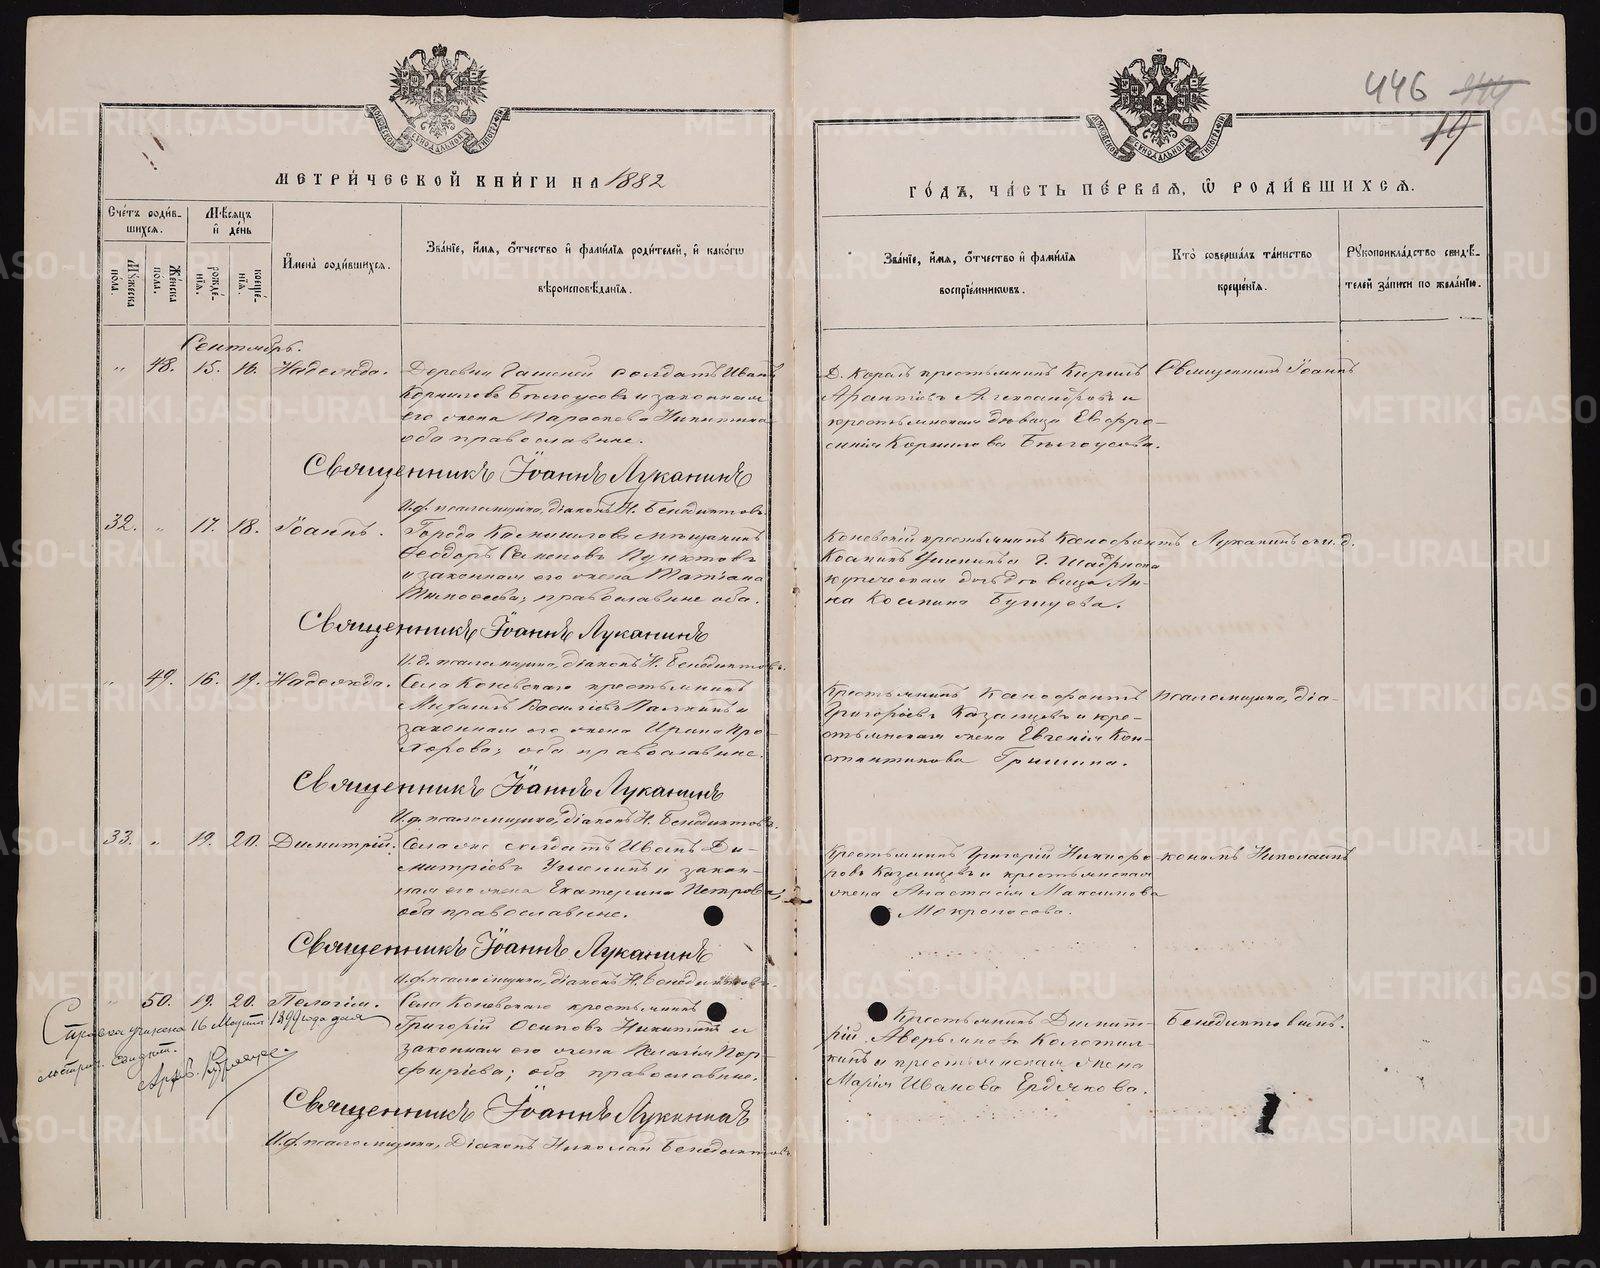 446
19
МЕТРИЧЕСКОЙ КНИГИ НА 1882
Счетъ родив-
шихся.
Мѣсяцъ
и день
Мужеска
пола.
Женска
пола.
рожде-
нія.
креще-
нія.
Имена родившихся.
Званіе, имя, отчество и фамилія родителей, и какогѡ
вѣроисповѣданія.
Сентябрь.
„ 48. 15. 16. Надежда.
солдатъ Иванъ
Корниловъ Бѣлоусовъ и законная
его жена Параскева Никитина
оба православные.
Священникъ Іоаннъ Луканинъ
И.д. псаломщика, діаконъ Н. Бенедиктовъ.
32. „ 17. 18. Іоаннъ.
Города мѣщанинъ
Ѳеодоръ
и законная его жена Татіана
православные оба.
Священникъ Іоаннъ Луканинъ
И.д. псаломщика, діаконъ Н. Бенедиктовъ.
„ 49. 16. 19. Надежда.
Села Коневскаго крестьянинъ
Михаилъ Васильевъ и
законная его жена Ирина Про-
хорова; оба православные.
Священникъ Іоаннъ Луканинъ
И.д. псаломщика, діаконъ Н. Бенедиктовъ.
33. „ 19. 20. Димитрій.
Села же солдатъ Иванъ Ди-
митріевъ и закон-
ная его жена Екатерина Петрова,
оба православные.
Священникъ Іоаннъ Луканинъ
И.д. псаломщика, діаконъ Н. Бенедиктовъ.
„ 50. 19. 20. Пелагія.
Села Коневскаго крестьянинъ
Григорій Осиповъ Никитинъ и
законная его жена Пелагія Пор-
фирьева; оба православные.
Священникъ Іоаннъ Луканинъ
И.д. псаломщика, Діаконъ Николай Бенедиктовъ
Справка учинена 16 Марта 1899 года для
метрич. свидѣт.
ГОДЪ, ЧАСТЬ ПЕРВАЯ, Ѡ РОДИВШИХСЯ.
Званіе, имя, отчество и фамилія
воспріемниковъ.
Кто совершалъ таинство
крещенія.
Рукоприкладство свидѣ-
телей записи по желанію.
крестьянинъ Кириллъ
Александровъ и
крестьянская дѣвица Евфро-
синія Корнилова Бѣлоусова.
Священникъ Іоаннъ
Коневскій крестьянинъ Ксенофонтъ
и г. Шадринска
купеческая дочь дѣвица Ан-
на
Луканинъ съ и.д.
Крестьянинъ Ксенофонтъ
Григорьевъ Казанцевъ и кре-
стьянская жена Евгенія Кон-
стантинова Гришина.
псаломщика, діа-
Крестьянинъ Григорій Никифо-
ровъ Казанцевъ и крестьянская
жена Анастасія Максимова
Мокроносова.
кономъ Николаемъ
Крестьянинъ Димит-
рій Аверьяновъ
и крестьянская жена
Марія Иванова Ердякова.
Бенедиктовымъ.
METRIKI.GASO-URAL.RU